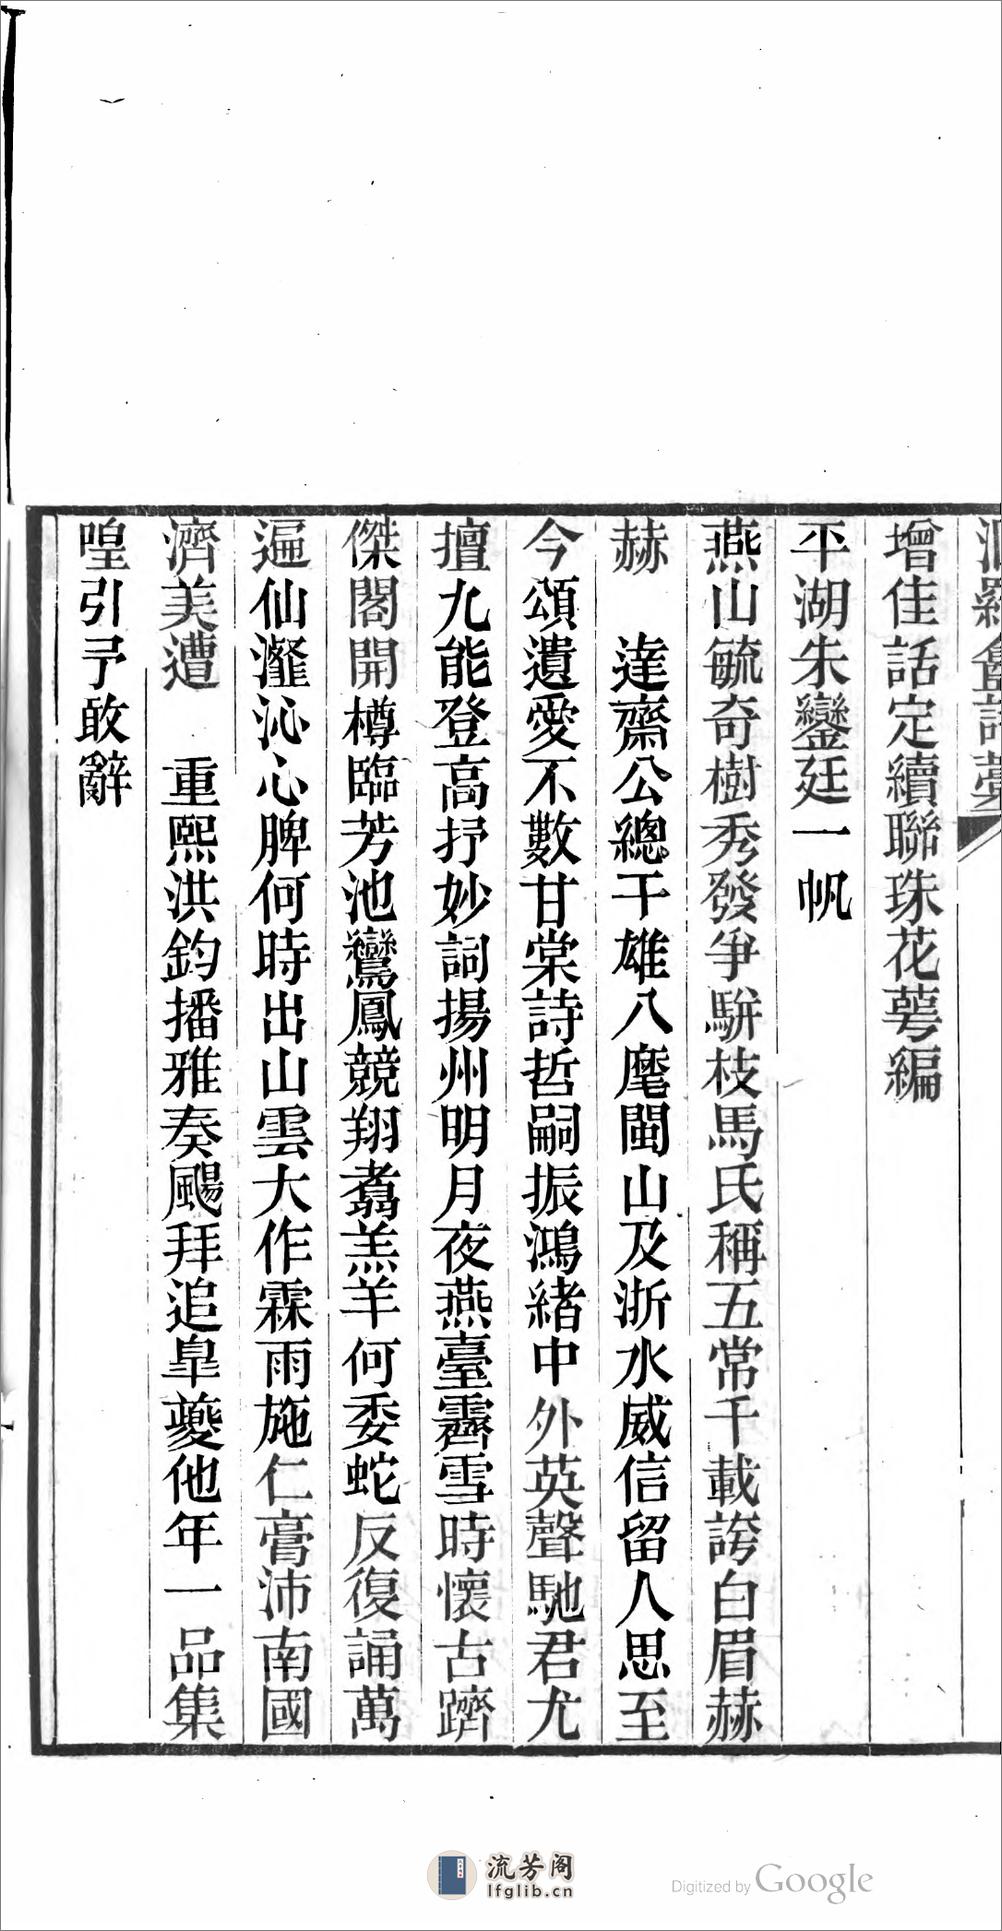 增佳話定續聯珠花萼編
平湖朱鑾廷一帆
燕山毓奇樹秀發爭駢枝馬氏稱五常千載誇白眉赫
赫　達齋公總干雄八麾閩山及浙水威信留人思至
今頌遺愛不數甘棠詩哲嗣振鴻緒中外英聲馳君尤
擅九能登高抒妙詞揚州明月夜燕臺霽雪時懷古躋
傑閣開樽臨芳池鸞鳳競翔翥羔羊何委蛇反復誦萬
遍仙瀣沁心脾何時出山雲大作霖雨施仁膏沛南國
濟美遭　重熙洪鈞播雅奏颺拜追皐夔他年一品集
喤引予敢辭
流芳阁
lfglib.cn
Digitized by Google